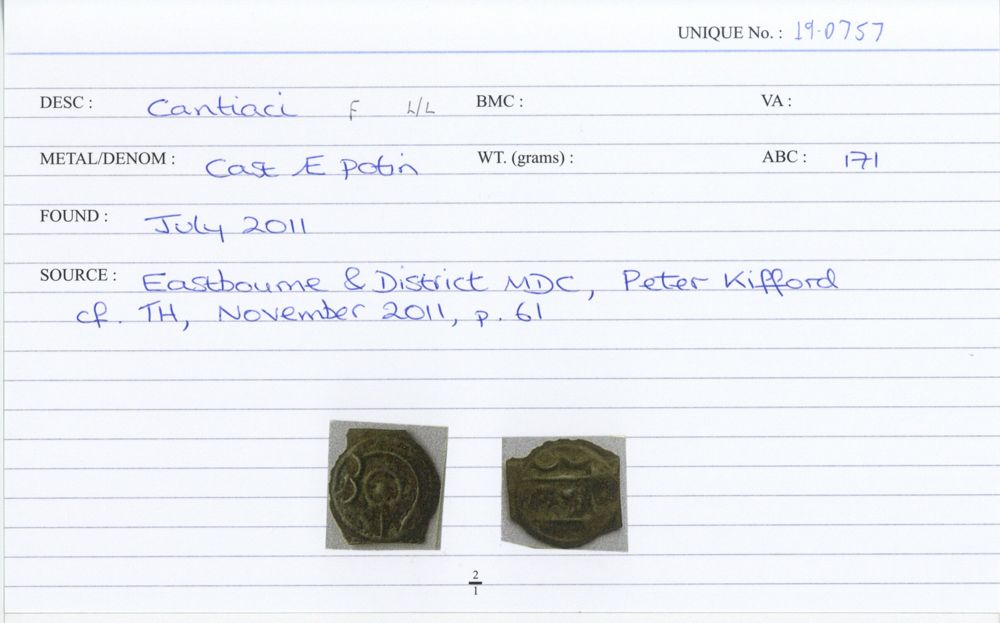 UNIQUE No. : 19.0757
DESC : Cantiaci F L/L BMC : VA :
METAL/DENOM : Cast Æ Potin WT. (grams) : ABC : 171
FOUND : July 2011
SOURCE : Eastbourne & District MDC, Peter Kifford
cf. TH, November 2011, p. 61
2
1